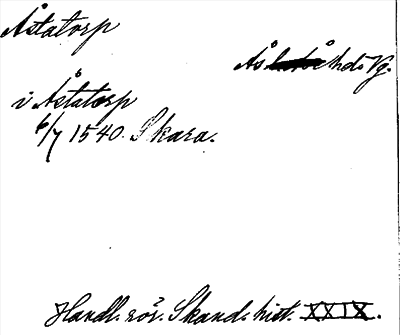 Åstatorp
Ås hd. Vg.
i Åstatorp
6/7 1540. Skara.
Handl. rör. Skand. hist. XXIX.